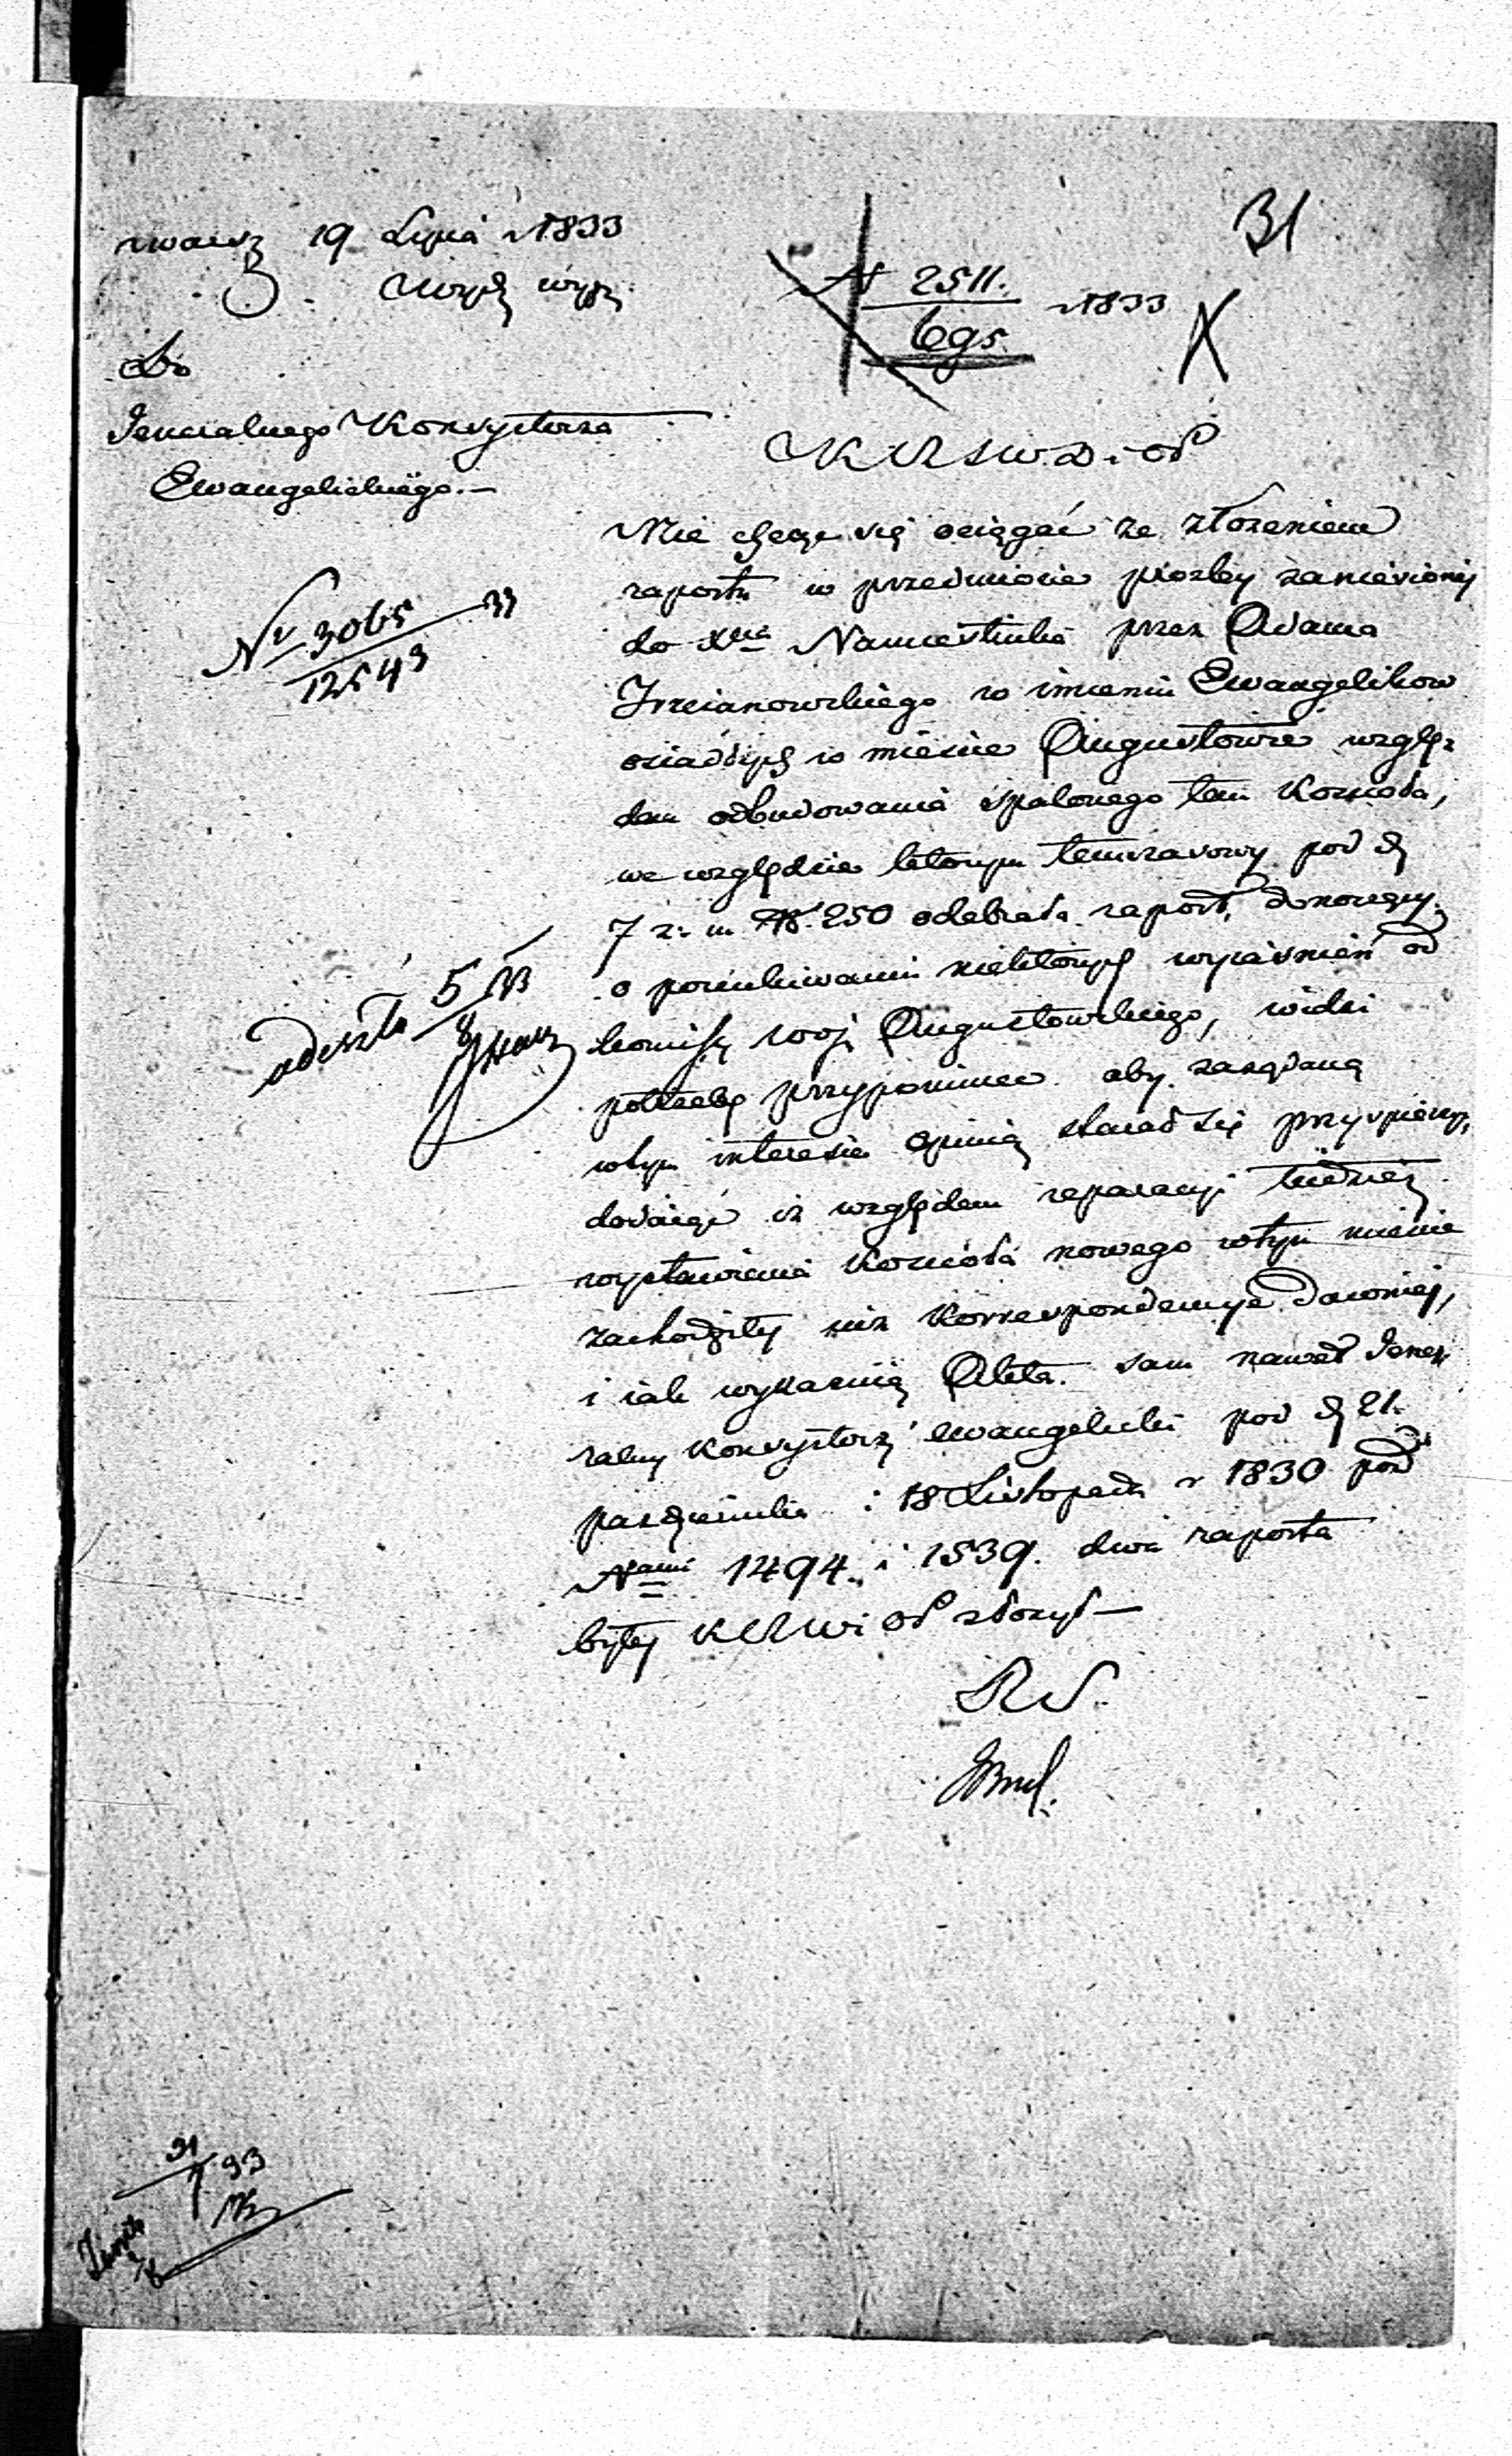 w Warsz 19 Lipca r 1833
31
Wydz wyzn:
N 2511. r 1833
695.
X
Do
Generalnego Konsystorza
Ewangelickiego.—
KRSWD i OP
Nie chcąc się ociągać ze złożeniem
raportu w przedmiocie prozby zaniesioney
do Xcia Namiestnika przez Adama
w imieniu Ewangelikow
osiadłych w mieście Augustowie wzglę-
dem odbudowania spalonego tam Kościoła,
we względzie którym pod d
7 z. m N. 250 odebrała raport, donoszący
o poszukiwaniu niektórych wyiaśnień od
komisyi woj: Augustowskiego, widzi
potrzebę przypomniec aby zażądaną
w tym interesie opinią starał się przyspieszyć,
dodaiąc iż względem reparacyi tudzież
wystawienia Kościoła nowego w tym mieście
zachodziły już Korrespondencye dawniej,
i iak wykazuią Akta. sam nawet Jene-
ralny Konsystorz ewangelicki pod d 21.
pazdziernika i 18 Listopada r 1830 pod
Nami 1494. i 1539. dwa raporta
byłej KRWiOP złożył—
Nr 3065 33
12543
odeszła 5/8 33
31/7 33